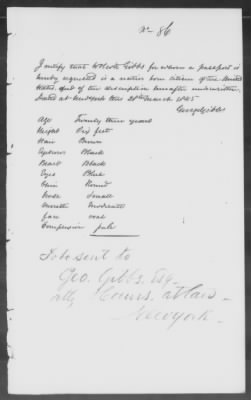 No 86
I certify that Wolcott Gibbs for whom a passport is
hereby requested is a native born citizen of the United
States, and of the description hereafter underwritten.
Dated at New York this 20th March 1845
George Gibbs
Age Twenty three years
Height Six feet
Hair Brown
Eyebrows Black
Beard Black
Eyes Blue
Chin Round
Nose Small
Mouth Moderate
Face oval
Complexion pale
To be sent to
Geo. Gibbs, Esq
atty & Couns. at Law
New York